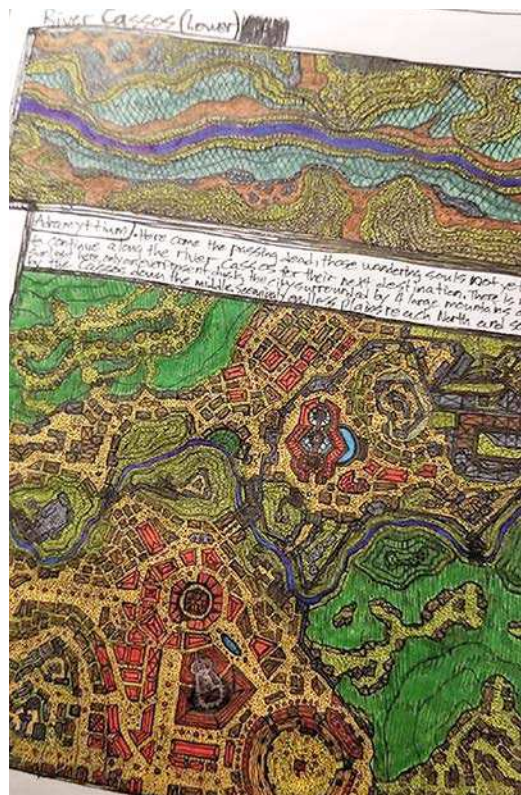 River Cassos (Lower)
Adramyttium/. Here come the passing dead, those wandering souls not ye
to continue along the River Cassos for their next destination. There is
here, only omnipresent dusk, the city surrounded by 4 large mountains
by the Cassos down the middle. Seemingly endless plains reach North and s